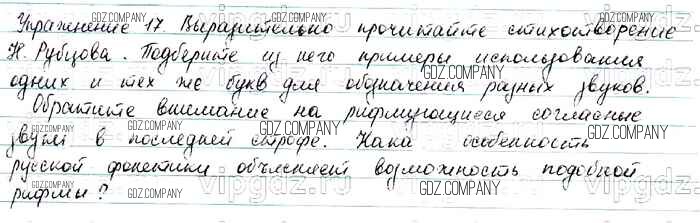 Упражнение 17. Выразительно прочитайте стихотворение
Н. Рубцова. Подберите из него примеры использования
одних и тех же букв для обозначения разных звуков.
Обратите внимание на рифмующиеся согласные
звуки в последней строфе. Кака особенность
русской фонетики объясняет возможность подобной
рифмы?
GDZ.COMPANY
vipgdz.ru